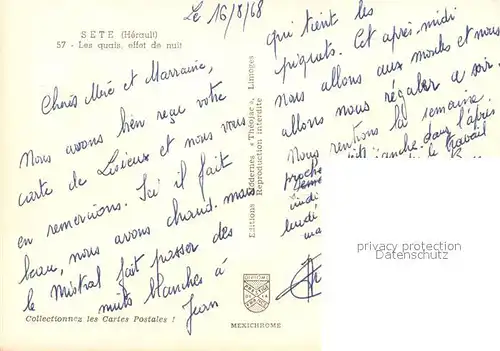 SETE (Hérault)
57 - Les quais, effet de nuit
Le 16/8/68
Chers Mémé et Marraine,
Nous avons bien reçu votre
carte de Lisieux et nous vous
en remercions. Ici il fait
beau, nous avons chaud mais
le Mistral fait passer des
nuits blanches à
Jean
qui tient les
piquets. Cet après-midi
nous allons aux moules et nous
allons nous régaler ce soir.
Nous rentrons la semaine
prochaine dans l'après
travail
lundi
Editions Modernes « Théojac », Limoges
Reproduction interdite
privacy protection
Collectionnez les Cartes Postales !
MEXICHROME